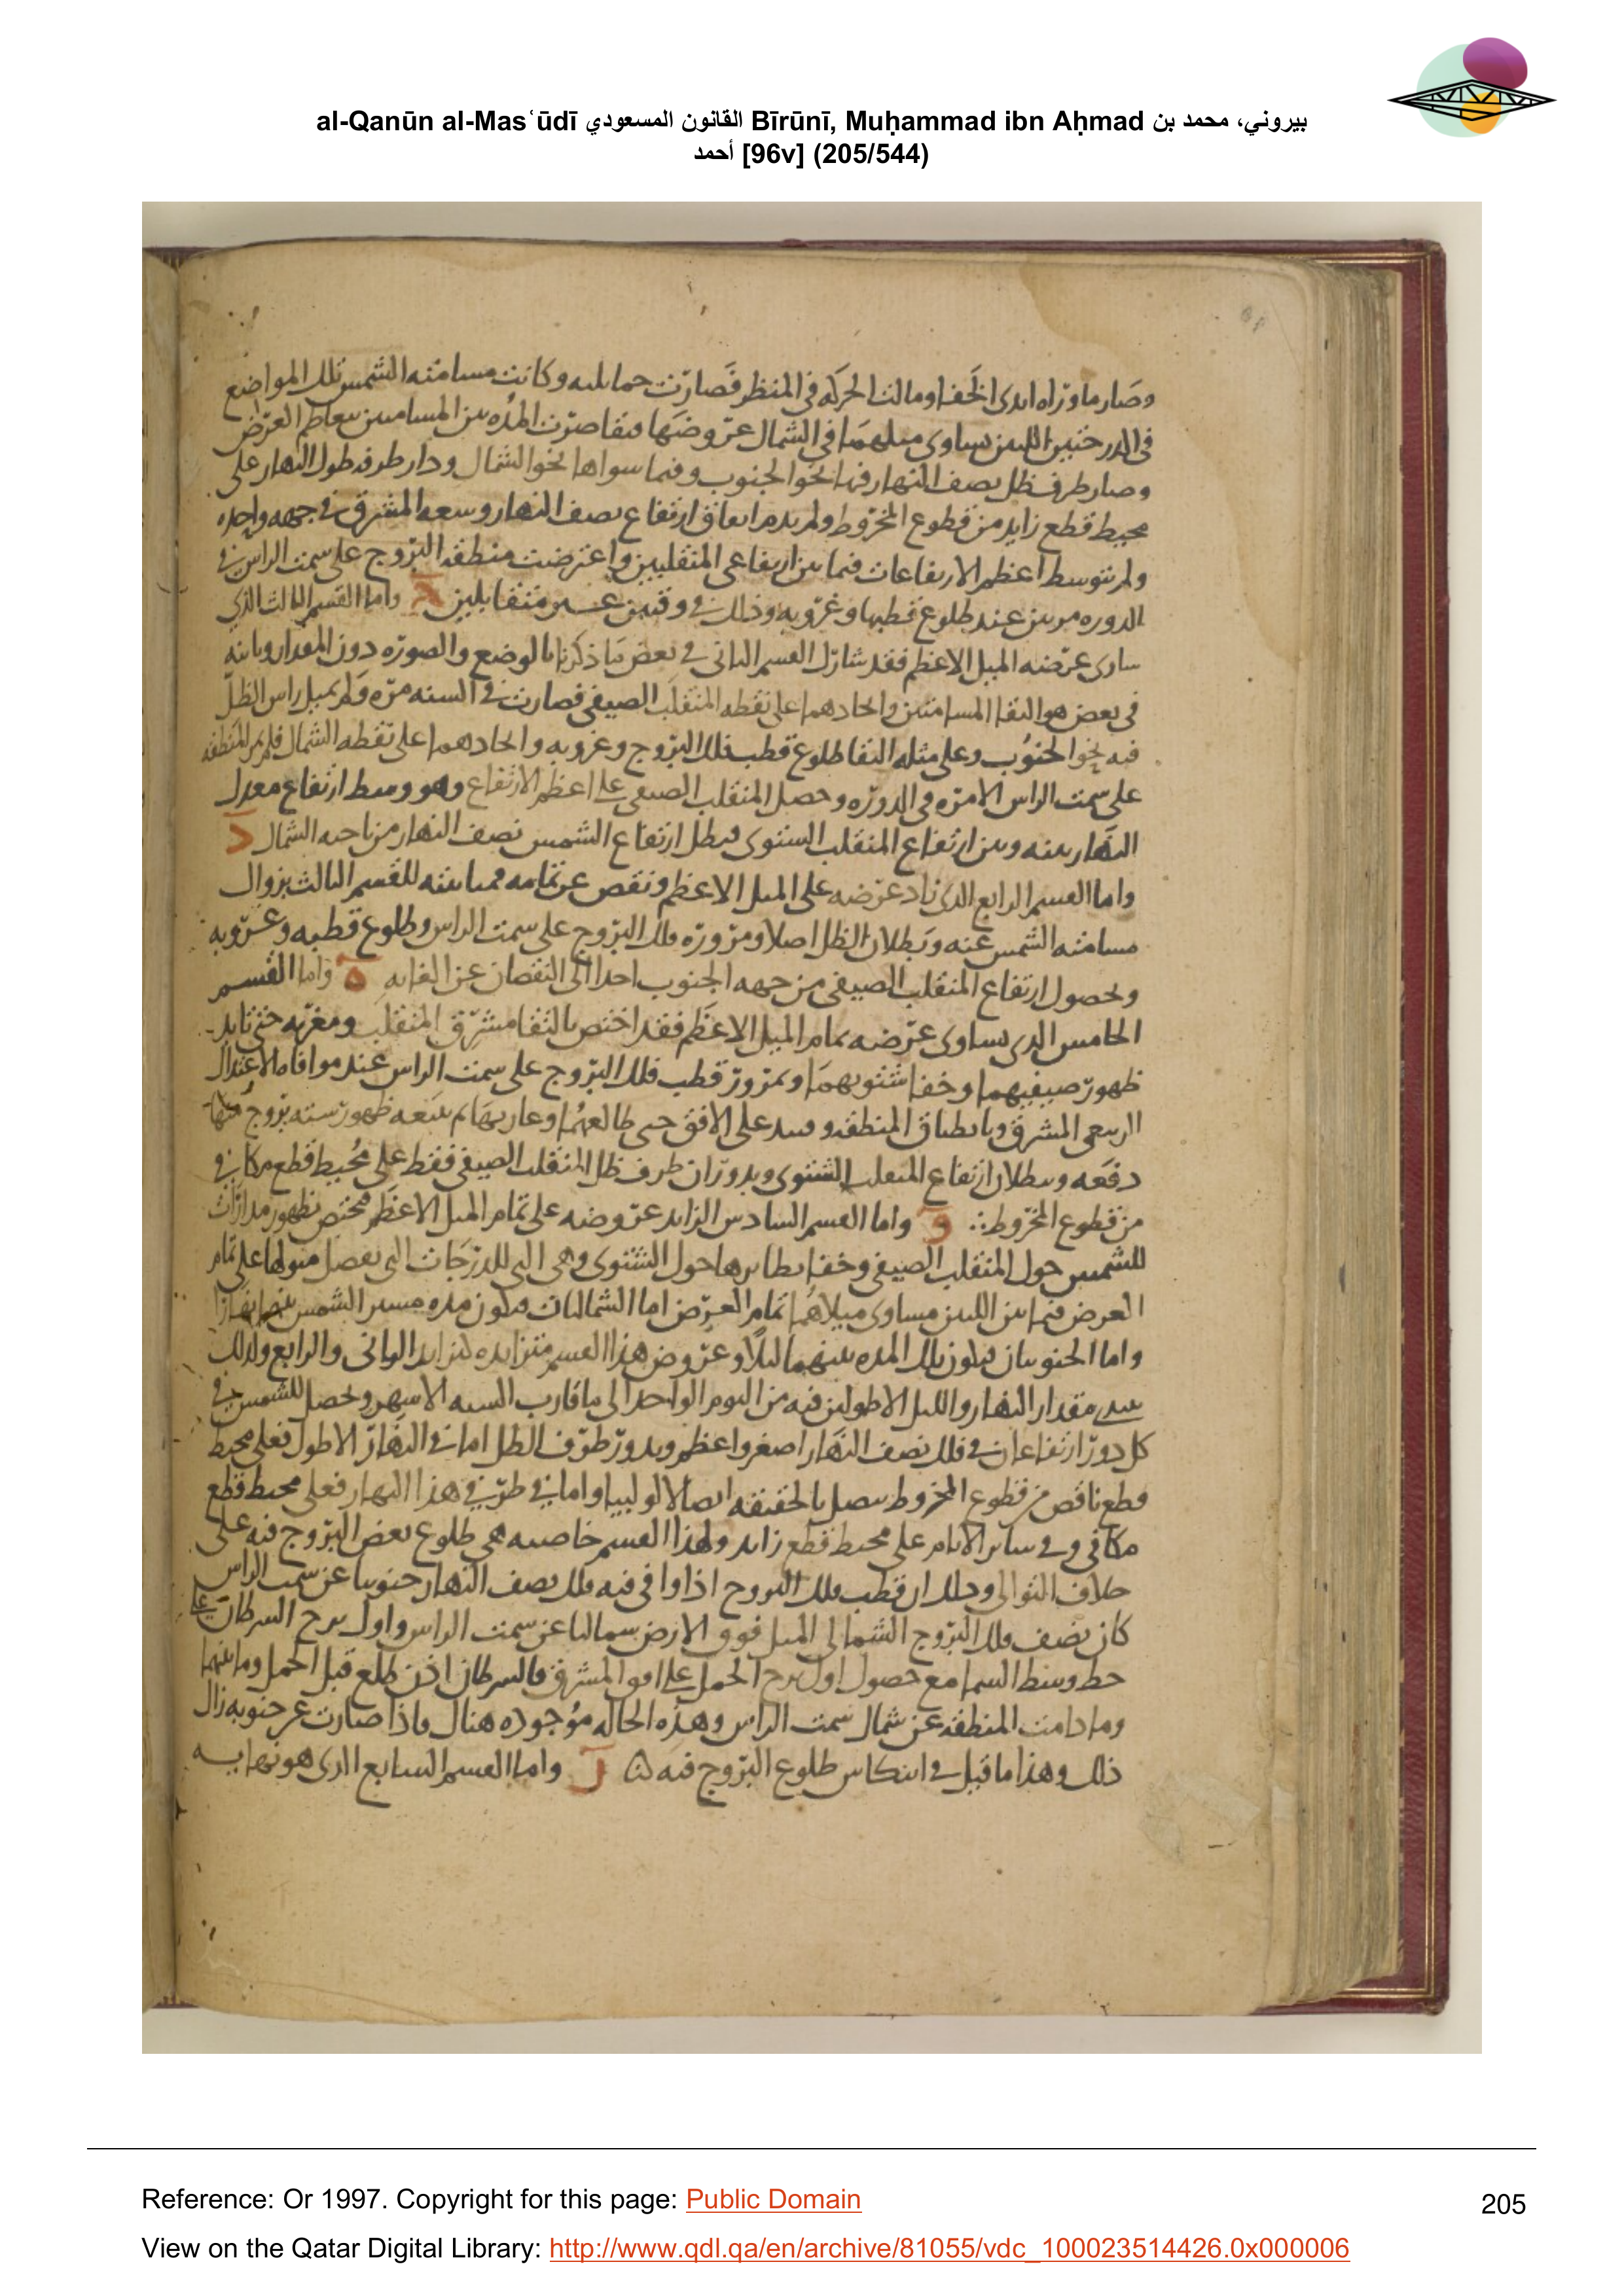 al-Qanūn al-Masʿūdī القانون المسعودي Bīrūnī, Muḥammad ibn Aḥmad بيروني، محمد بن
أحمد [96v] (205/544)
وصار ما وراه ابدى الخفا ومالت الحركه في المنظر فصارت حمايليه وكانت مسامته الشمس تلك المواضع
في الدرجتين اللتين يساوى ميلهما في الشمال عروضها فتقاصرت المده بين المسامتين بتعاظم العرض
وصار طرف ظل نصف النهار فيها نحو الجنوب وفيما سواها نحو الشمال ودار طرفه طول النهار على
محيط قطع زايد من قطوع المخروط ولم يدم اتفاق ارتفاع نصف النهار وسعه المشرق في جهه واحده
ولم يتوسط اعظم الارتفاعات فيما بين ارتفاعى المنقلبين واعترضت منطقه البروج على سمت الراس في
الدوره مرتين عند طلوع قطبها وغروبه وذلك في وقتين غير متقابلين ج واما القسم الثالث الذي
ساوى عرضه الميل الاعظم فقد شارك القسم الثانى في بعض ما ذكرنا بالوضع والصوره دون المقدار وباينه
في بعض هو التقا المسامتتين واتحادهما على نقطه المنقلب الصيفي فصارت في السنه مره ولم يميل راس الظل
فيه نحو الجنوب وعلى مثله التقا طلوع قطب فلك البروج وغروبه واتحادهما على نقطه الشمال فلم يمر المنطقه
على سمت الراس الا مره في الدوره وحصل المنقلب الصيفي على اعظم الارتفاع وهو وسط ارتفاع معدل
النهار بينه وبين ارتفاع المنقلب الشتوى فبطل ارتفاع الشمس نصف النهار من ناحيه الشمال د
واما القسم الرابع الذى زاد عرضه على الميل الاعظم ونقص عن تمامه فمباينته للقسم الثالث بزوال
مسامته الشمس عنه وبطلان الظل اصلا ومروره فلك البروج على سمت الراس وطلوع قطبه وغروبه
وحصول ارتفاع المنقلب الصيفي من جهه الجنوب احدا الى النقصان عن الغايه ه واما القسم
الخامس الذى يساوى عرضه تمام الميل الاعظم فقد اختص بالتقا مشرق المنقلب ومغربه حتى تابد
ظهور صيفيهما وخفا شتويهما وبمرور قطب فلك البروج على سمت الراس عند موافاه الاعتدال
الربيعى المشرق وبانطباق المنطقه على الافق حتى طالعها وغاربها ثم يتبعه ظهور سته بروج منها
دفعه وببطلان ارتفاع المنقلب الشتوى وبدوران طرف ظل المنقلب الصيفي فقط على محيط قطع مكافي
من قطوع المخروط و واما القسم السادس الزايد عروضه على تمام الميل الاعظم فمختص بظهور مدارات
للشمس حول المنقلب الصيفي وخفا نظايرها حول الشتوى وهي التى للدرجات التى يفضل ميولها على تمام
العرض فيما بين اللتين يساوى ميلاهما تمام العرض اما الشماليات فيكون مده مسير الشمس بينهما نهارا
واما الجنوبيتان فيكون تلك المده بينهما ليلا وعروض هذا القسم متزايده تزايد الثانى والرابع ولذلك
مقدار النهار والليل الاطولين فيه من اليوم الواحد الى ما قارب السته الاشهر وتحصل للشمس في
كل دور ارتفاعان في فلك نصف النهار اصغر واعظم ويدور طرف الظل اما في النهار الاطول فعلى محيط
قطع ناقص من قطوع المخروط يتصل بالحقيقه اتصالا لولبيا واما في طرفي هذا النهار فعلى محيط قطع
مكافي وفي ساير الايام على محيط قطع زايد ولهذا القسم خاصيه هي طلوع بعض البروج فيه على
خلاف التوالى وذلك ان قطب فلك البروج اذا وافى فيه فلك نصف النهار جنوبيا عن سمت الراس
كان نصف فلك البروج الشمالى الميل فوق الارض شماليا عن سمت الراس واول برج السرطان على
خط وسط السما مع حصول اول برج الحمل على افق المشرق فالسرطان اذن طلع قبل الحمل وما بينهما
وما دامت المنطقه عن شمال سمت الراس وهذه الحاله موجوده هناك فاذا صارت عن جنوبه زال
ذلك وهذا ما قيل في انتكاس طلوع البروج فيه ز واما القسم السابع الذى هو نهايه
Reference: Or 1997. Copyright for this page: Public Domain
205
View on the Qatar Digital Library: http://www.qdl.qa/en/archive/81055/vdc_100023514426.0x000006